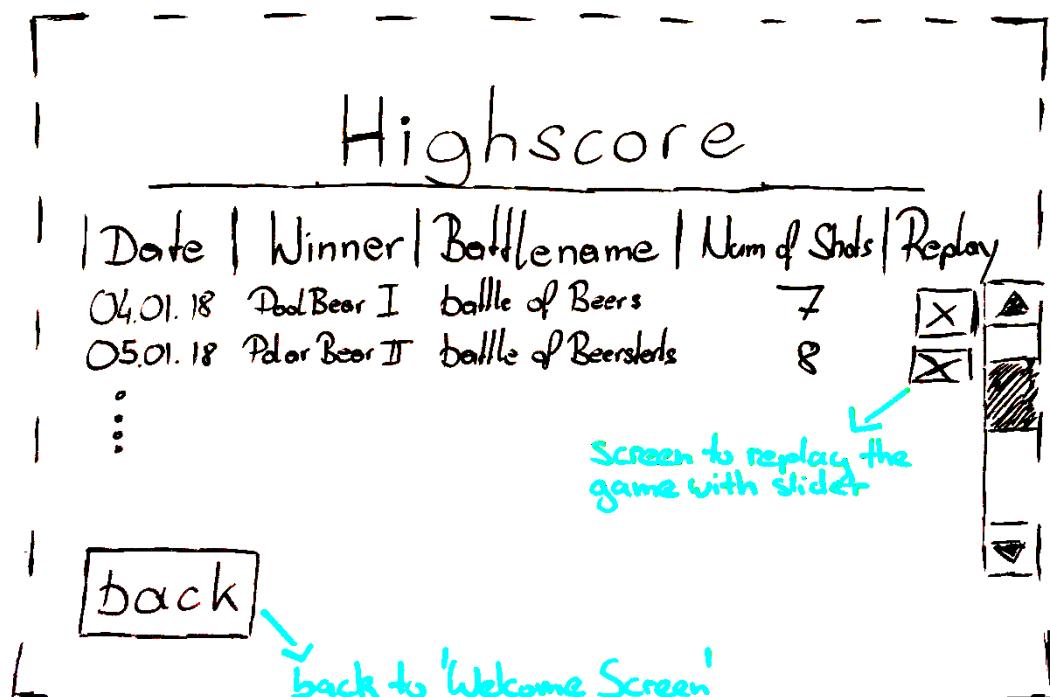 Highscore
| Date | Winner | Battlename | Num of Shots | Replay
04.01.18 Pool Bear I battle of Beers 7
05.01.18 Polar Bear II battle of 8
screen to replay the
game with slider
back
back to 'Welcome Screen'